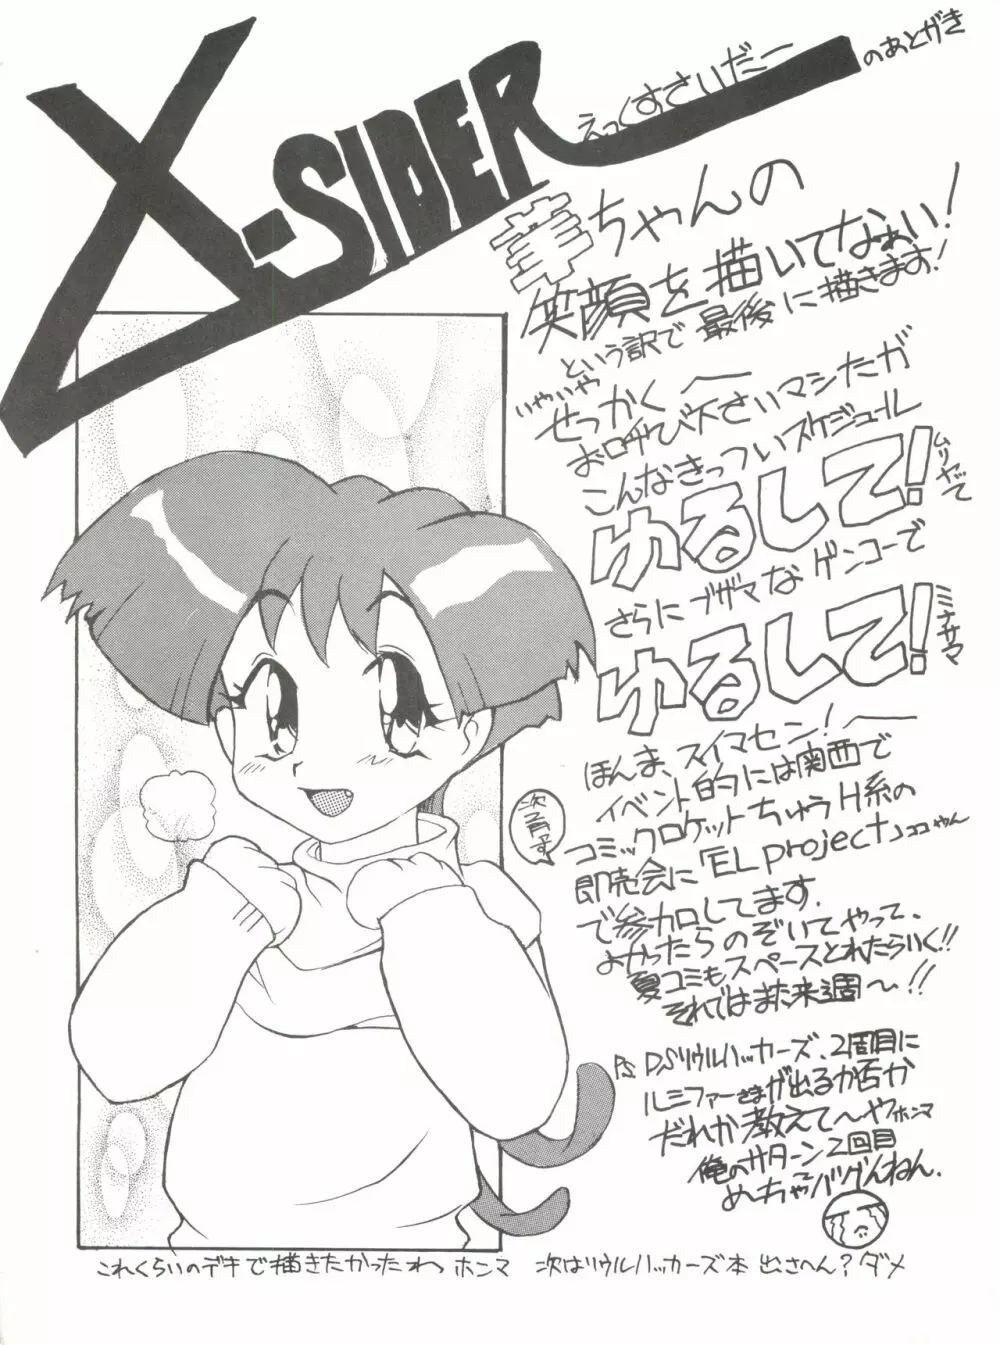 X-SIDER
えっくすさいだー
のあとがき
華ちゃんの
笑顔を描いてなぁい!
という訳で最後に描きます!
いやいや
せっかく
お呼び下さいマシたが
こんなきっついスケジュール
ムリやって
ゆるして!
さらにブザマなゲンコーで
ゆるして!
ミナサマ
ほんま、スイマセン!
イベント的には関西で
コミックロケットちゅうH系の
即売会に「EL project」ココやん
で参加してます.
よかったらのぞいてやって、
夏コミもスペースとれたらいく!!
それではまた来週〜!!
PS DSソウルハッカーズ、2周目に
ルシファーさまが出るか否か
だれか教えて〜やホンマ
俺のサターン2回目
めっちゃバグんねん.
これくらいのデキで描きたかったわ ホンマ 次はソウルハッカーズ本 出さへん? ダメ